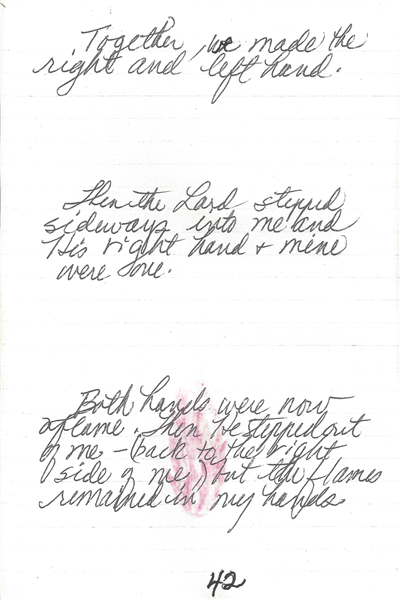 Together, we made the
right and left hand.
Then the Lord stepped
sideways into me and
His right hand + mine
were one.
Both hands were now
aflame. Then He stepped out
of me - (back to the right
side of me) but the flames
remained in my hands
42